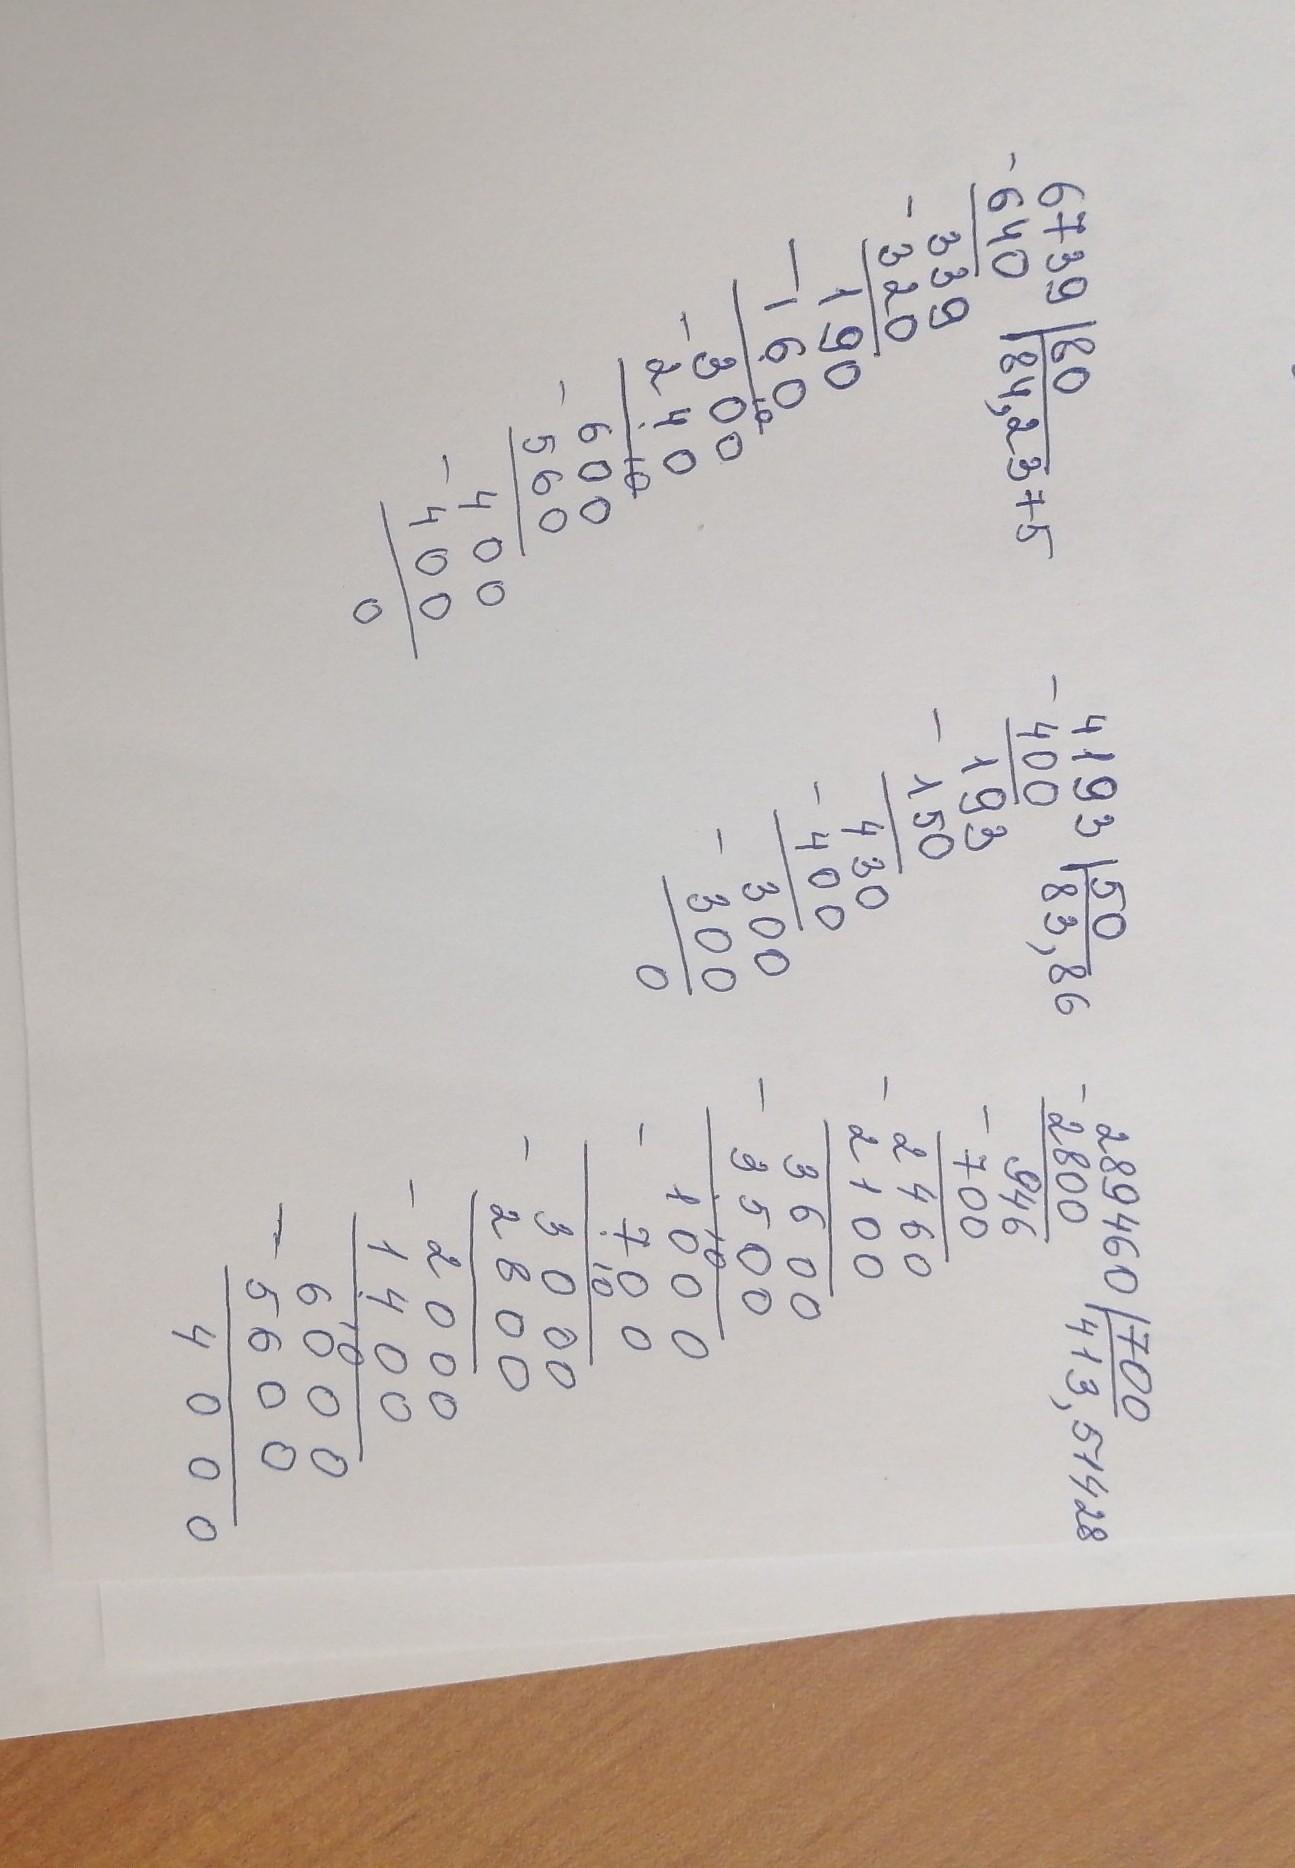 - 6739 | 80
640 | 84,2375
- 339
320
190
- 160
10
- 300
240
10
- 600
560
- 400
400
0
- 4193 | 50
400 | 83,86
- 193
150
- 430
400
- 300
300
0
- 289460 | 700
2800 | 413,51428
- 946
700
- 2460
2100
- 3600
3500
10
- 1000
700
10
- 3000
2800
- 2000
1400
10
- 6000
5600
4000